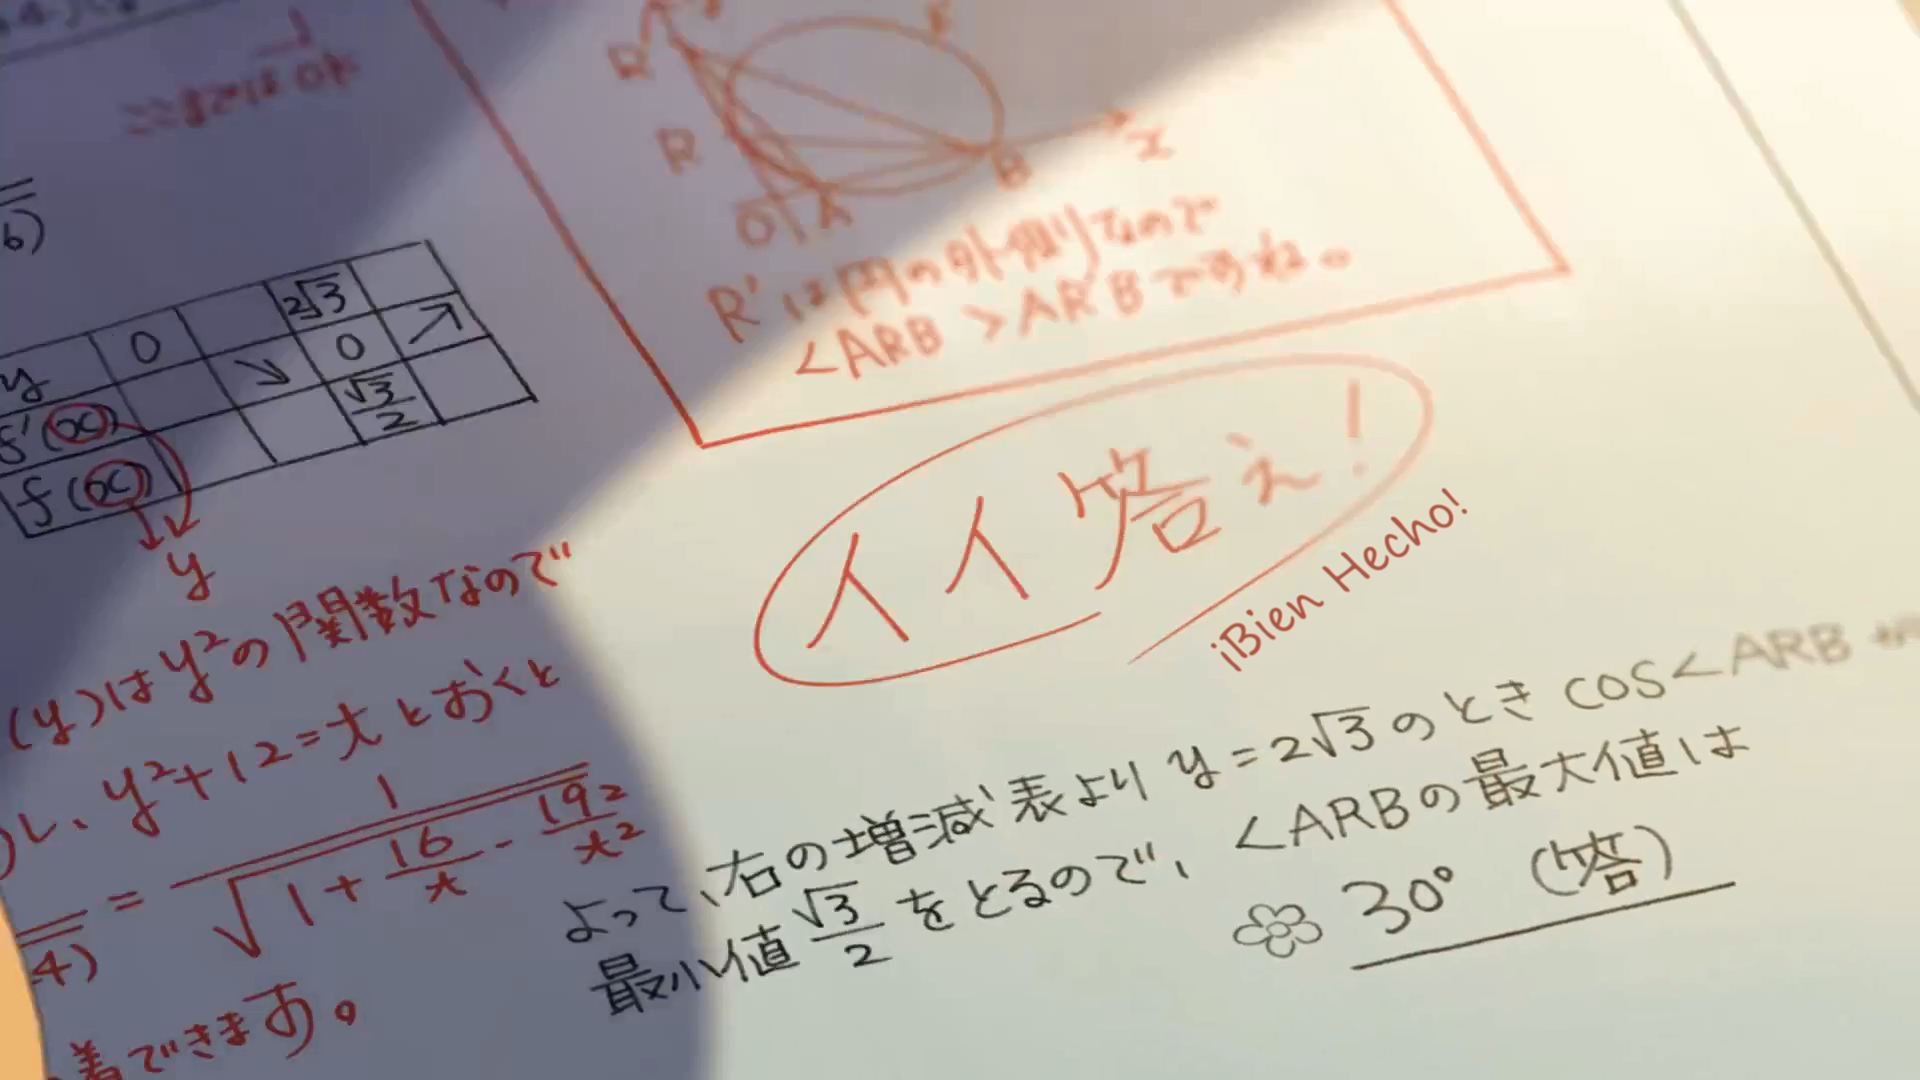 ここまではOK
b)
y 0 2√3
f'(x) ↘ 0 ↗
f(x) √3/2
y
(y)はy²の関数なので
し、y²+12=tとおくと
4) = 1/√(1+16/t-192/t²)
着できます。
R'
R
O A B x
R'は円の外側なので
<ARB>AR'Bですね。
イイ答え!
¡Bien Hecho!
よって、右の増減表より y=2√3のとき cos<ARBが
最小値√3/2をとるので、<ARBの最大値は
30° (答)